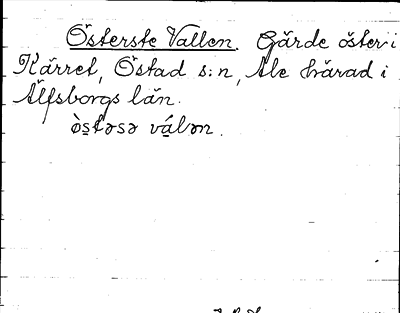 Österste Vallen. Gärde öster i
Kärret, Östad s:n, Ale härad i
Älfsborgs län.
òstəsə válən.